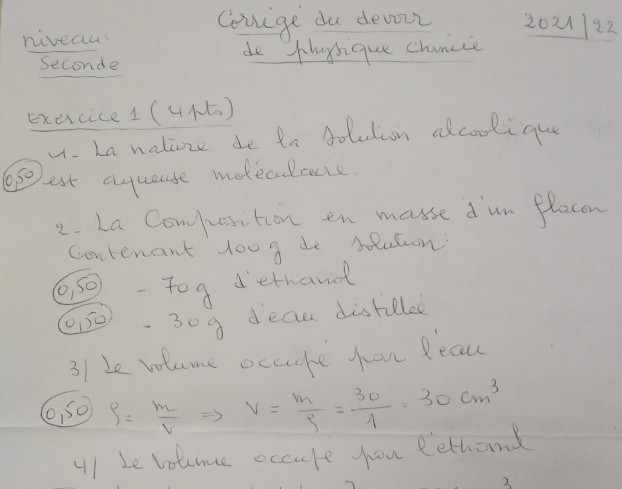 Corrigé du devoir 2021/22
niveau: de physique chimie
Seconde
Exercice 1 (4pts)
1- La nature de la solution alcoolique
0,50 est aqueuse moléculaire.
2- La Composition en masse d'un flacon
Contenant 100g de solution:
0,50 - 70g d'ethanol
0,50 - 30g d'eau distillée
3/ Le volume occupé par l'eau
0,50 ρ = m/V => V = m/ρ = 30/1 = 30 cm³
4/ Le volume occupé par l'ethanol